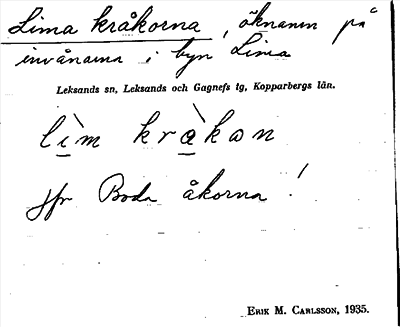 Lima kråkorna, öknamn på
invånarna i byn Lima
Leksands sn, Leksands och Gagnefs tg, Kopparbergs län.
lìm kràkan
jfr Boda åkorna!
ERIK M. CARLSSON, 1935.